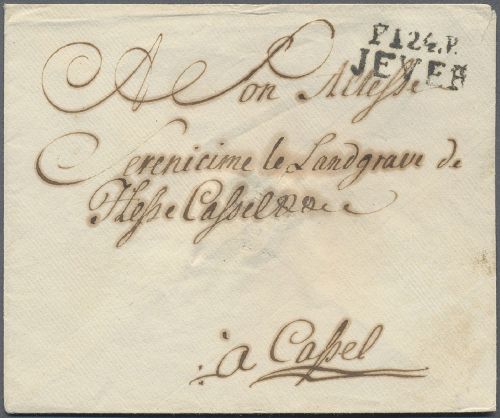 P.124.P.
JEVER
A Son Altesse
Serenicime le Landgrave de
Hesse Cassel
à Cassel